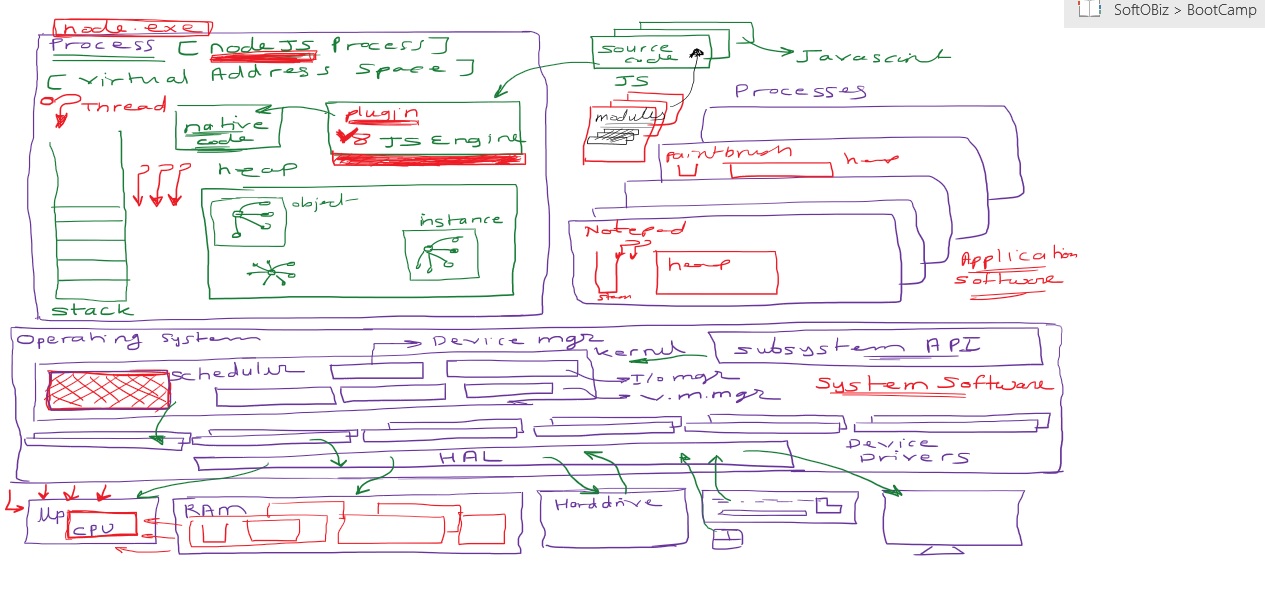 SoftOBiz > BootCamp
node.exe
Process [ node JS Process ]
[ Virtual Address Space ]
Thread
native
code
plugin
V8 JS Engine
heap
object
instance
stack
source
code
JS
Javascript
modules
Processes
paintbrush
heap
Notepad
heap
Application
software
Operating System
Device mgr
Kernel
subsystem API
scheduler
I/o mgr
v.m.mgr
System Software
Device
Drivers
HAL
Mp
CPU
RAM
Harddrive